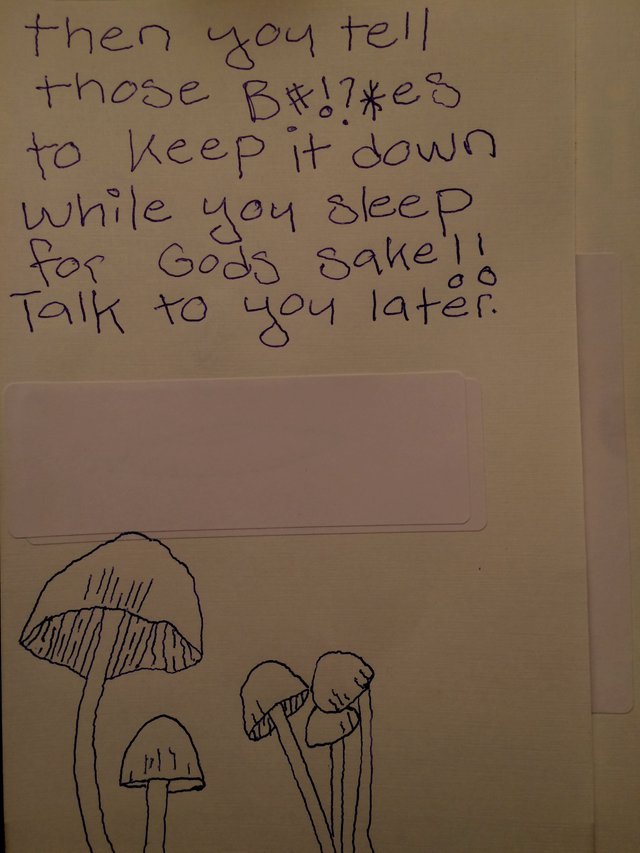 then you tell
those B#!?*es
to keep it down
while you sleep
for Gods sake!!
Talk to you later.